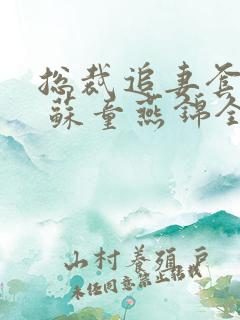 总裁追妻套
苏童燕锦全
山村养殖户
未经同意禁止转载